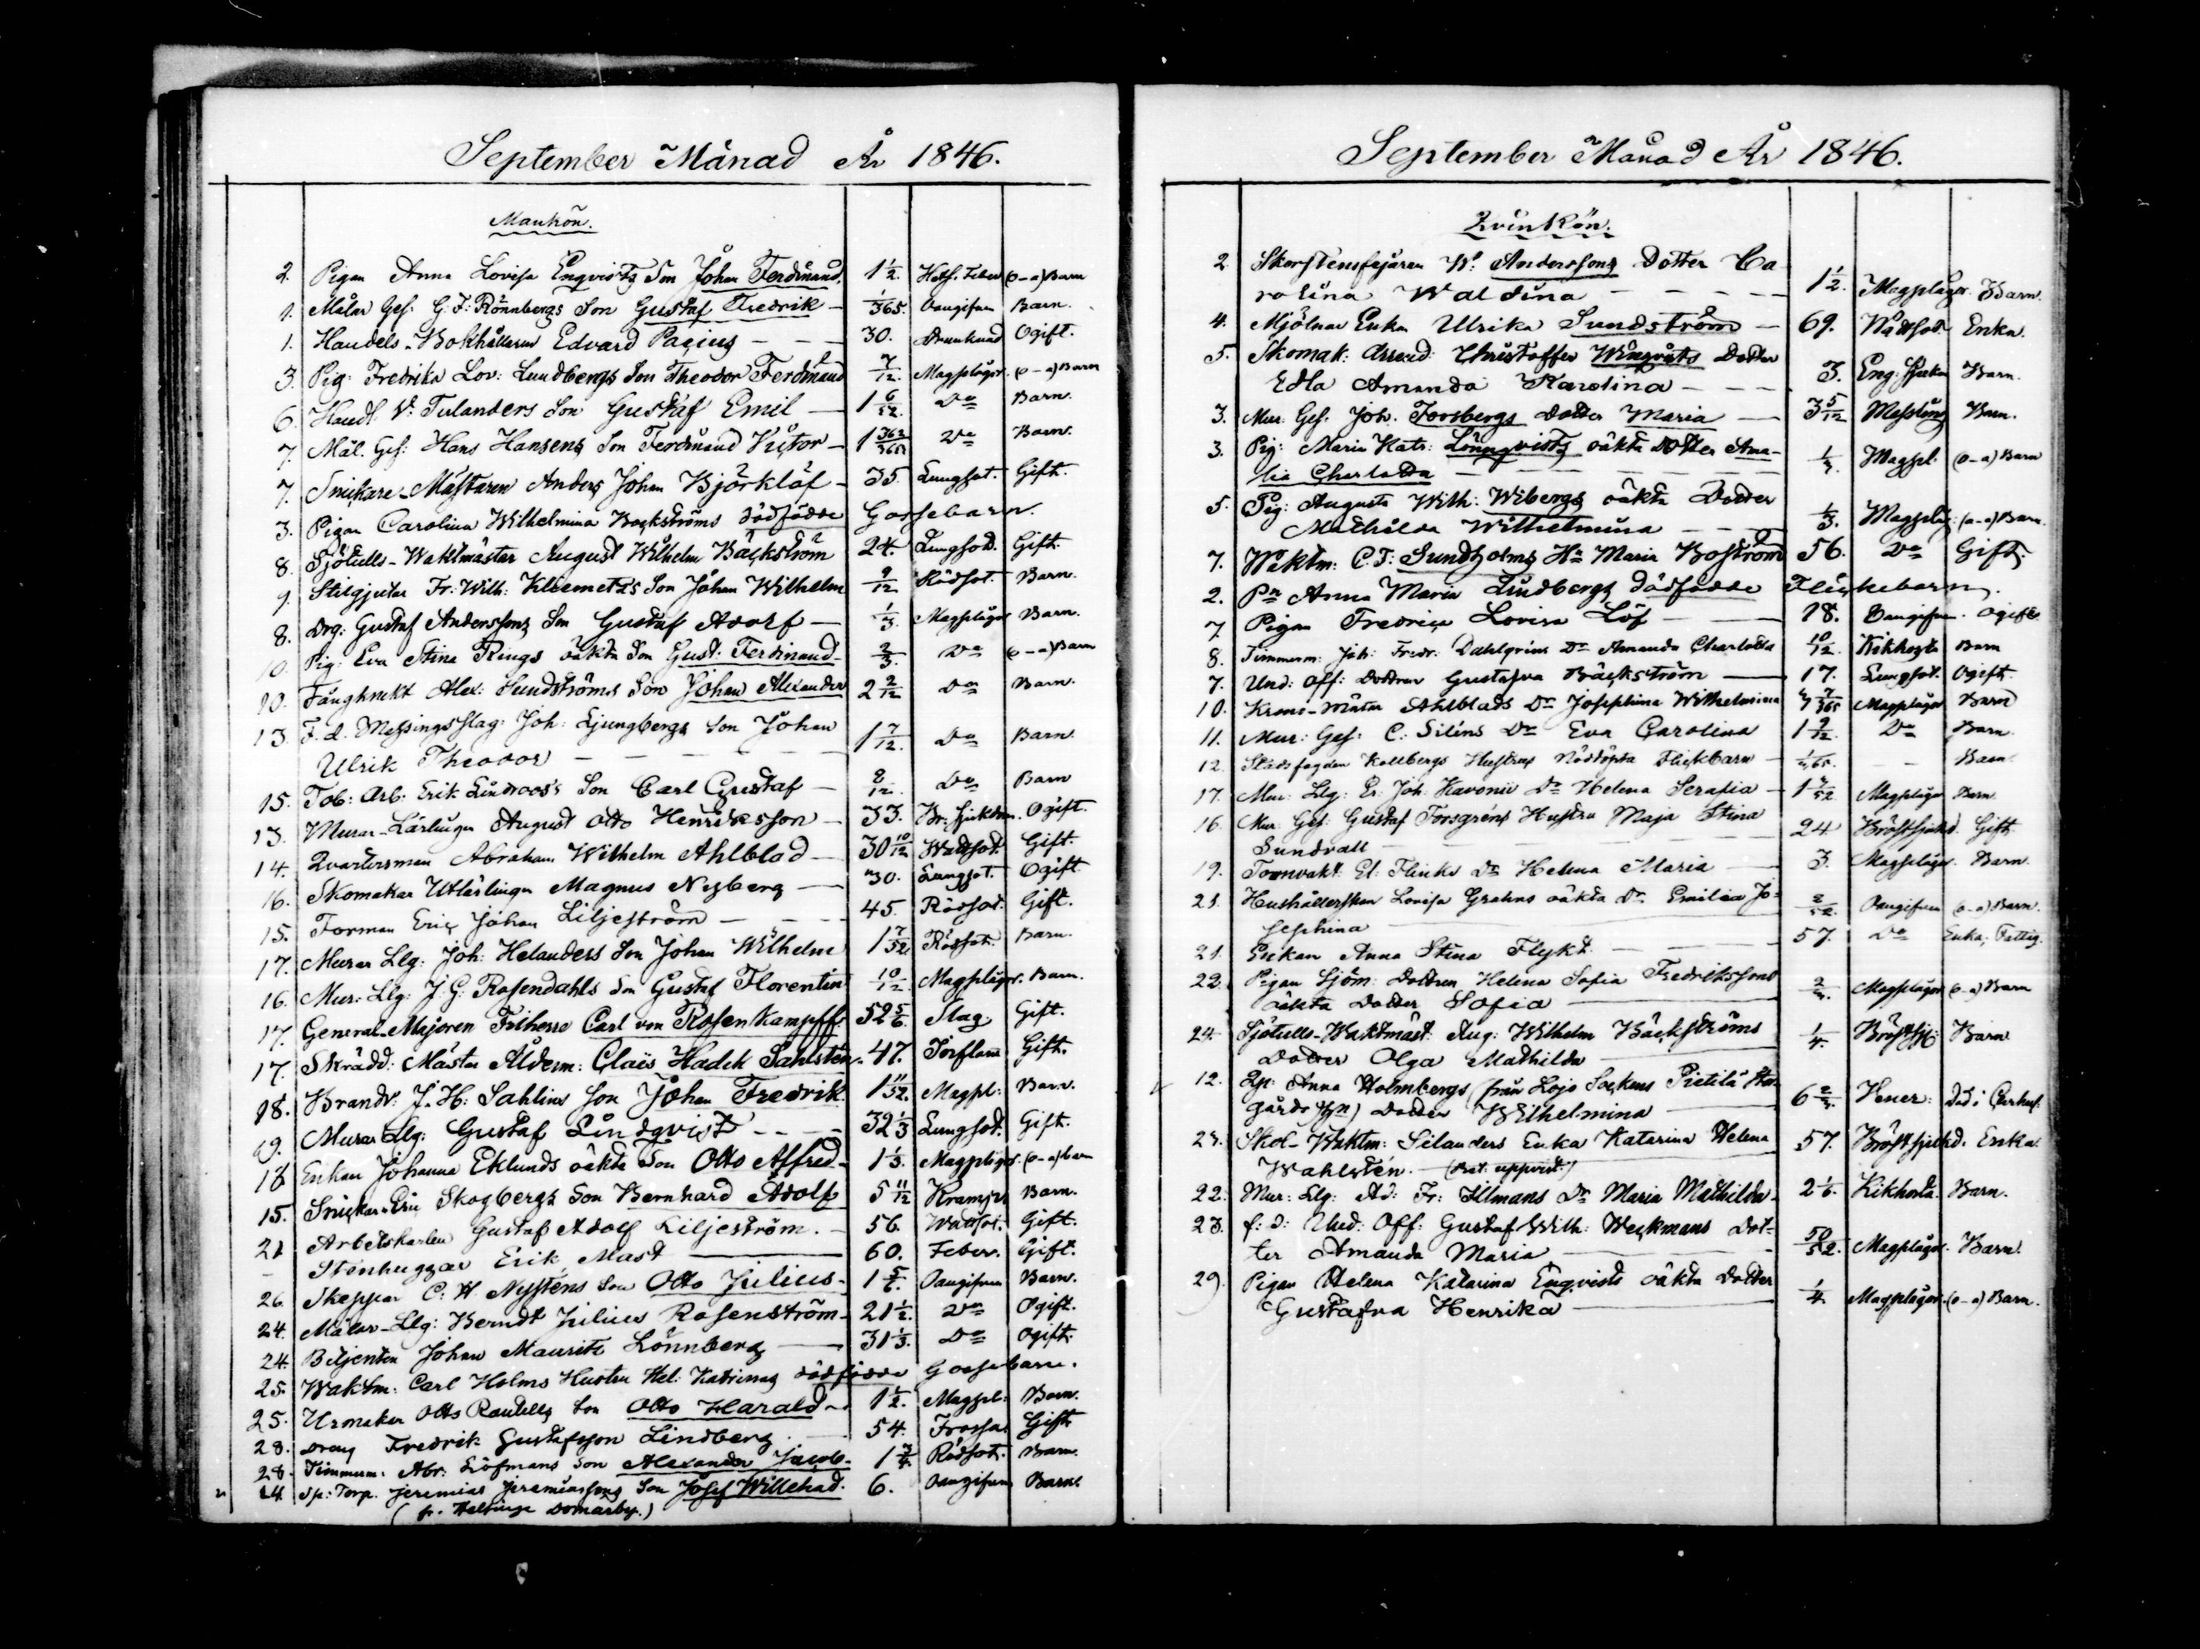 September Månad År 1846.
Mankön.
2. Pigan Anna Lovisa Enqvists Son Johan Ferdinand. 1 1/2. Hets. Feber (o-ä) Barn
1. Målar Ges. G. F. Rönnbergs Son Gustaf Fredrik — 1/365. Oangifven Barn.
1. Handels-Bokhållaren Edvard Pacius — — — 30. Drunknad Ogift.
3. Pig: Fredrika Lov: Lundbergs Son Theodor Ferdinand 7/12. Magplågor. (o-ä) Barn
6. Handl. V. Tulanders Son Gustaf Emil — 1 6/52. Do Barn.
7. Mål. Ges: Hans Hansens Son Ferdinand Victor — 1 362/365 Do Barn.
7. Snickare-Mästaren Anders Johan Björklöf — 35. Lungsot. Gift.
3. Pigan Carolina Wilhelmina Backströms dödfödde Gossebarn.
8. Sjötulls-Waktmästar August Wilhelm Bäckström 24. Lungsot. Gift.
9. Stilgjutar Fr: Wilh: Klemetzs Son Johan Wilhelm 9/12 Rödsot. Barn.
8. Drg: Gustaf Anderssons Son Gustaf Adolf — 1/3. Magplågor Barn.
10. Pig: Eva Stina Rings oäkta Son Gust: Ferdinand — 2/3. Do (o-ä) Barn
10. Fångknekt Alex: Sundströms Son Johan Alexander 2 2/12 Do Barn.
13. F. d. Messingsslag: Joh: Ljungbergs Son Johan
Ulrik Theodor — — — — 1 7/12. Do Barn.
15. Tob: Arb: Erik Lindroos's Son Carl Gustaf — 8/12. Do Barn
13. Murar-Lärlingen August Otto Henriksson — 33. Br: sjukdom. Ogift.
14. Qvartersman Abraham Wilhelm Ahlblad — 30 10/12 Wattsot. Gift.
16. Skomakar Utlärlingen Magnus Nyberg — 30. Lungsot. Ogift.
15. Forman Eric Johan Liljeström — — — 45. Rödsot. Gift.
17. Murar Llg: Joh: Helanders Son Johan Wilhelm 1 7/52. Rödsot. Barn.
16. Mur: Llg: J. G: Rosendahls Son Gustaf Florentin 10/12 Magplågor. Barn.
17. General-Majoren Friherre Carl von Rosenkampff. 52 5/6. Slag. Gift.
17. Skrädd: Mästar Ålderm: Claës Sahlstén. 47. Gift.
18. Brandv: J. H: Sahlins Son Johan Fredrik. 1 11/52. Magpl: Barn.
19. Murar Llg: Gustaf Lindqvist — — 32 1/3 Lungsot. Gift.
18 Enkan Johanna Eklunds oäkta Son Otto Alfred — 1 1/3. Magplågor. (o-ä) barn
15. Snickar Skogbergs Son Bernhard Adolf 5 11/12 Kramp Barn.
21 Arbetskarlen Gustaf Adolf Liljeström. — 56. Wattsot. Gift.
– Stenhuggar Erik Mast — 60. Feber. Gift.
26. Skeppar C. W Nysténs Son Otto Julius. 1 5/6. Oangifven Barn.
24. Målar-Llg: Berndt Julius Rosenström — 21 1/2. Do Ogift.
24. Betjenten Johan Maurits Lönnberg — 31 1/3. Do Ogift.
25. Waktm: Carl Holms Hustru Hel: Katrinas dödfödde Gossebarn.
25. Urmakar Otto Son Otto Harald — 1 1/2. Magpl: Barn.
28. Dräng Fredrik Gustafsson Lindberg. — 54. Frossa Gift
28. Timmerm. Abr: Löfmans Son Alexander Jacob — Rödsot. Barn.
24. Sp: Torp. Jeremias Jeremiassons Son Josef Willehad. 6. Oangifven Barn.
(fr. Helsinge Domarby.)
September Månad År 1846.
Qvinkön.
2 Skorstensfejaren W: Anderssons Dotter Ca-
rolina Waldina — — — — 1 1/2. Magplågor. Barn.
4. Mjölnar Enkan Ulrika Sundström — 69. Wattsot. Enka.
5. Skomak: Arrend: Christoffer Winqvists Dotter
Edla Amanda Karolina — — 3. Eng: Sjukan Barn.
3. Mur: Ges. Joh. Forsbergs dotter Maria — 3 5/12 Messling Barn.
3. Pig: Maria Kats: Lönnqvists oäkta dotter Ama-
lia Charlotta — — — 1/3. Magpl. (o-ä) Barn
5. Pig: Augusta Wilh: Wibergs oäkta Dotter
Mathilda Wilhelmina — — — 1/3. Magplåg: (o-ä) Barn.
7. Waktm: C. F: Sundholms Hu Maria Boström 56. Do Gift.
2. Pn Anna Maria Lindbergs dödfödde Flickebarn.
7 Pigan Fredrica Lovisa Löf — 18. Oangifven. Ogift.
8. Timmerm: Joh: Fredr: Dahlgrens Dr Amanda Charlotta 10/12. Kikhosta Barn
7. Und: Off: dottren Gustafva Bäckström — 17. Lungsot. Ogift.
10. Krono-Mätar Ahlblads Dr Josephina Wilhelmina Magplågor Barn
11. Mur: Ges: C: Siléns Dr Eva Carolina 1 9/12. Do Barn.
12. Stadsfogden Kollbergs Hustrus Nöddöpta Flickbarn — 1/365. – – Barn.
17. Mur: Llg: Er. Joh. Havonii Dr Helena Serafia — Magplågor Barn.
16. Mur. Ges. Gustaf Forsgréns Hustru Maja Stina
Sundvall — 24 Bröstsjukd. Gift.
19. Tornvakt: El: Flinks Dr Helena Maria — 3. Magplågor. Barn.
21. Hushållerskan Lovisa Grahns oäkta Dr Emilia Jo-
sephina — 2/52. Oangifven (o-ä) Barn.
21. Enkan Anna Stina Flykt — 57. Do Enka, Fattig.
22. Pigan Sjöm: Dottren Helena Sofia Fredrikssons
oäkta dotter Sofia — Magplågor (o-ä) Barn
24. Sjötulls-Waktmäst: Aug: Wilhelm Bäckströms
dotter Olga Mathilda — 1/4. Bröstsj: Barn
12. Anna Holmbergs (från Lojo Sockens Pietilä
gårds dotter Wilhelmina — 6 2/3. Vener:
Skol-Waktm: Silanders Enka Katarina Helena
Wahlstén. — 57. Bröstsjukd. Enka.
22. Mur: Llg: Ad: Fr: Ilmans Dr Maria Mathilda. 2 1/6. Kikhosta. Barn.
23. f: d: Und: Off: Gustaf Wilh: Weckmans Dot-
ter Amanda Maria — 50/52. Magplågor. Barn.
29. Pigan Helena Katarina Enqvists oäkta Dotter
Gustafva Henrika — 1/4. Magplågor. (o-ä) Barn.